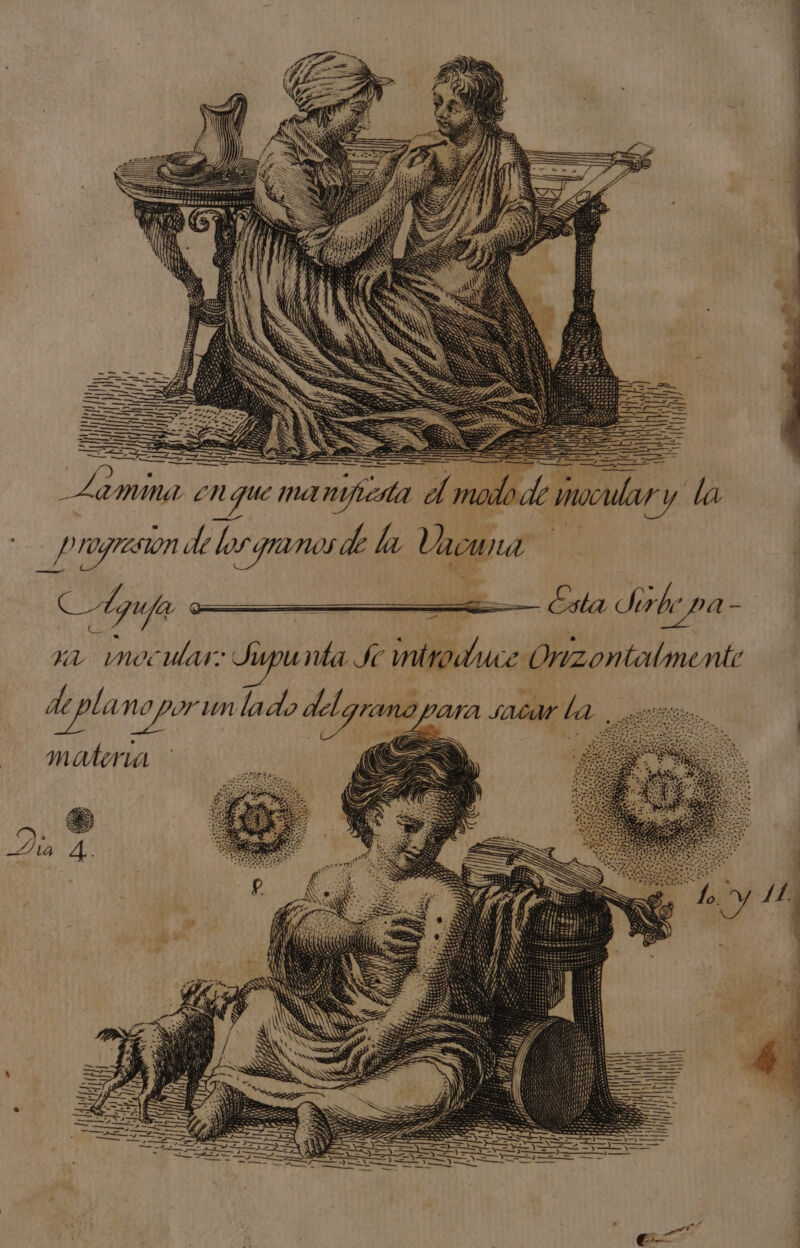 Lamina en que manifiesta el modo de inocular y la
progresion de los granos de la Vacuna
Aguja Esta Sirbe pa-
ra inocular: Supunta Se introduce Orizontalmente
de plano por un lado del grano para sacar la
materia
Dia 4.
8.
10. y 11.